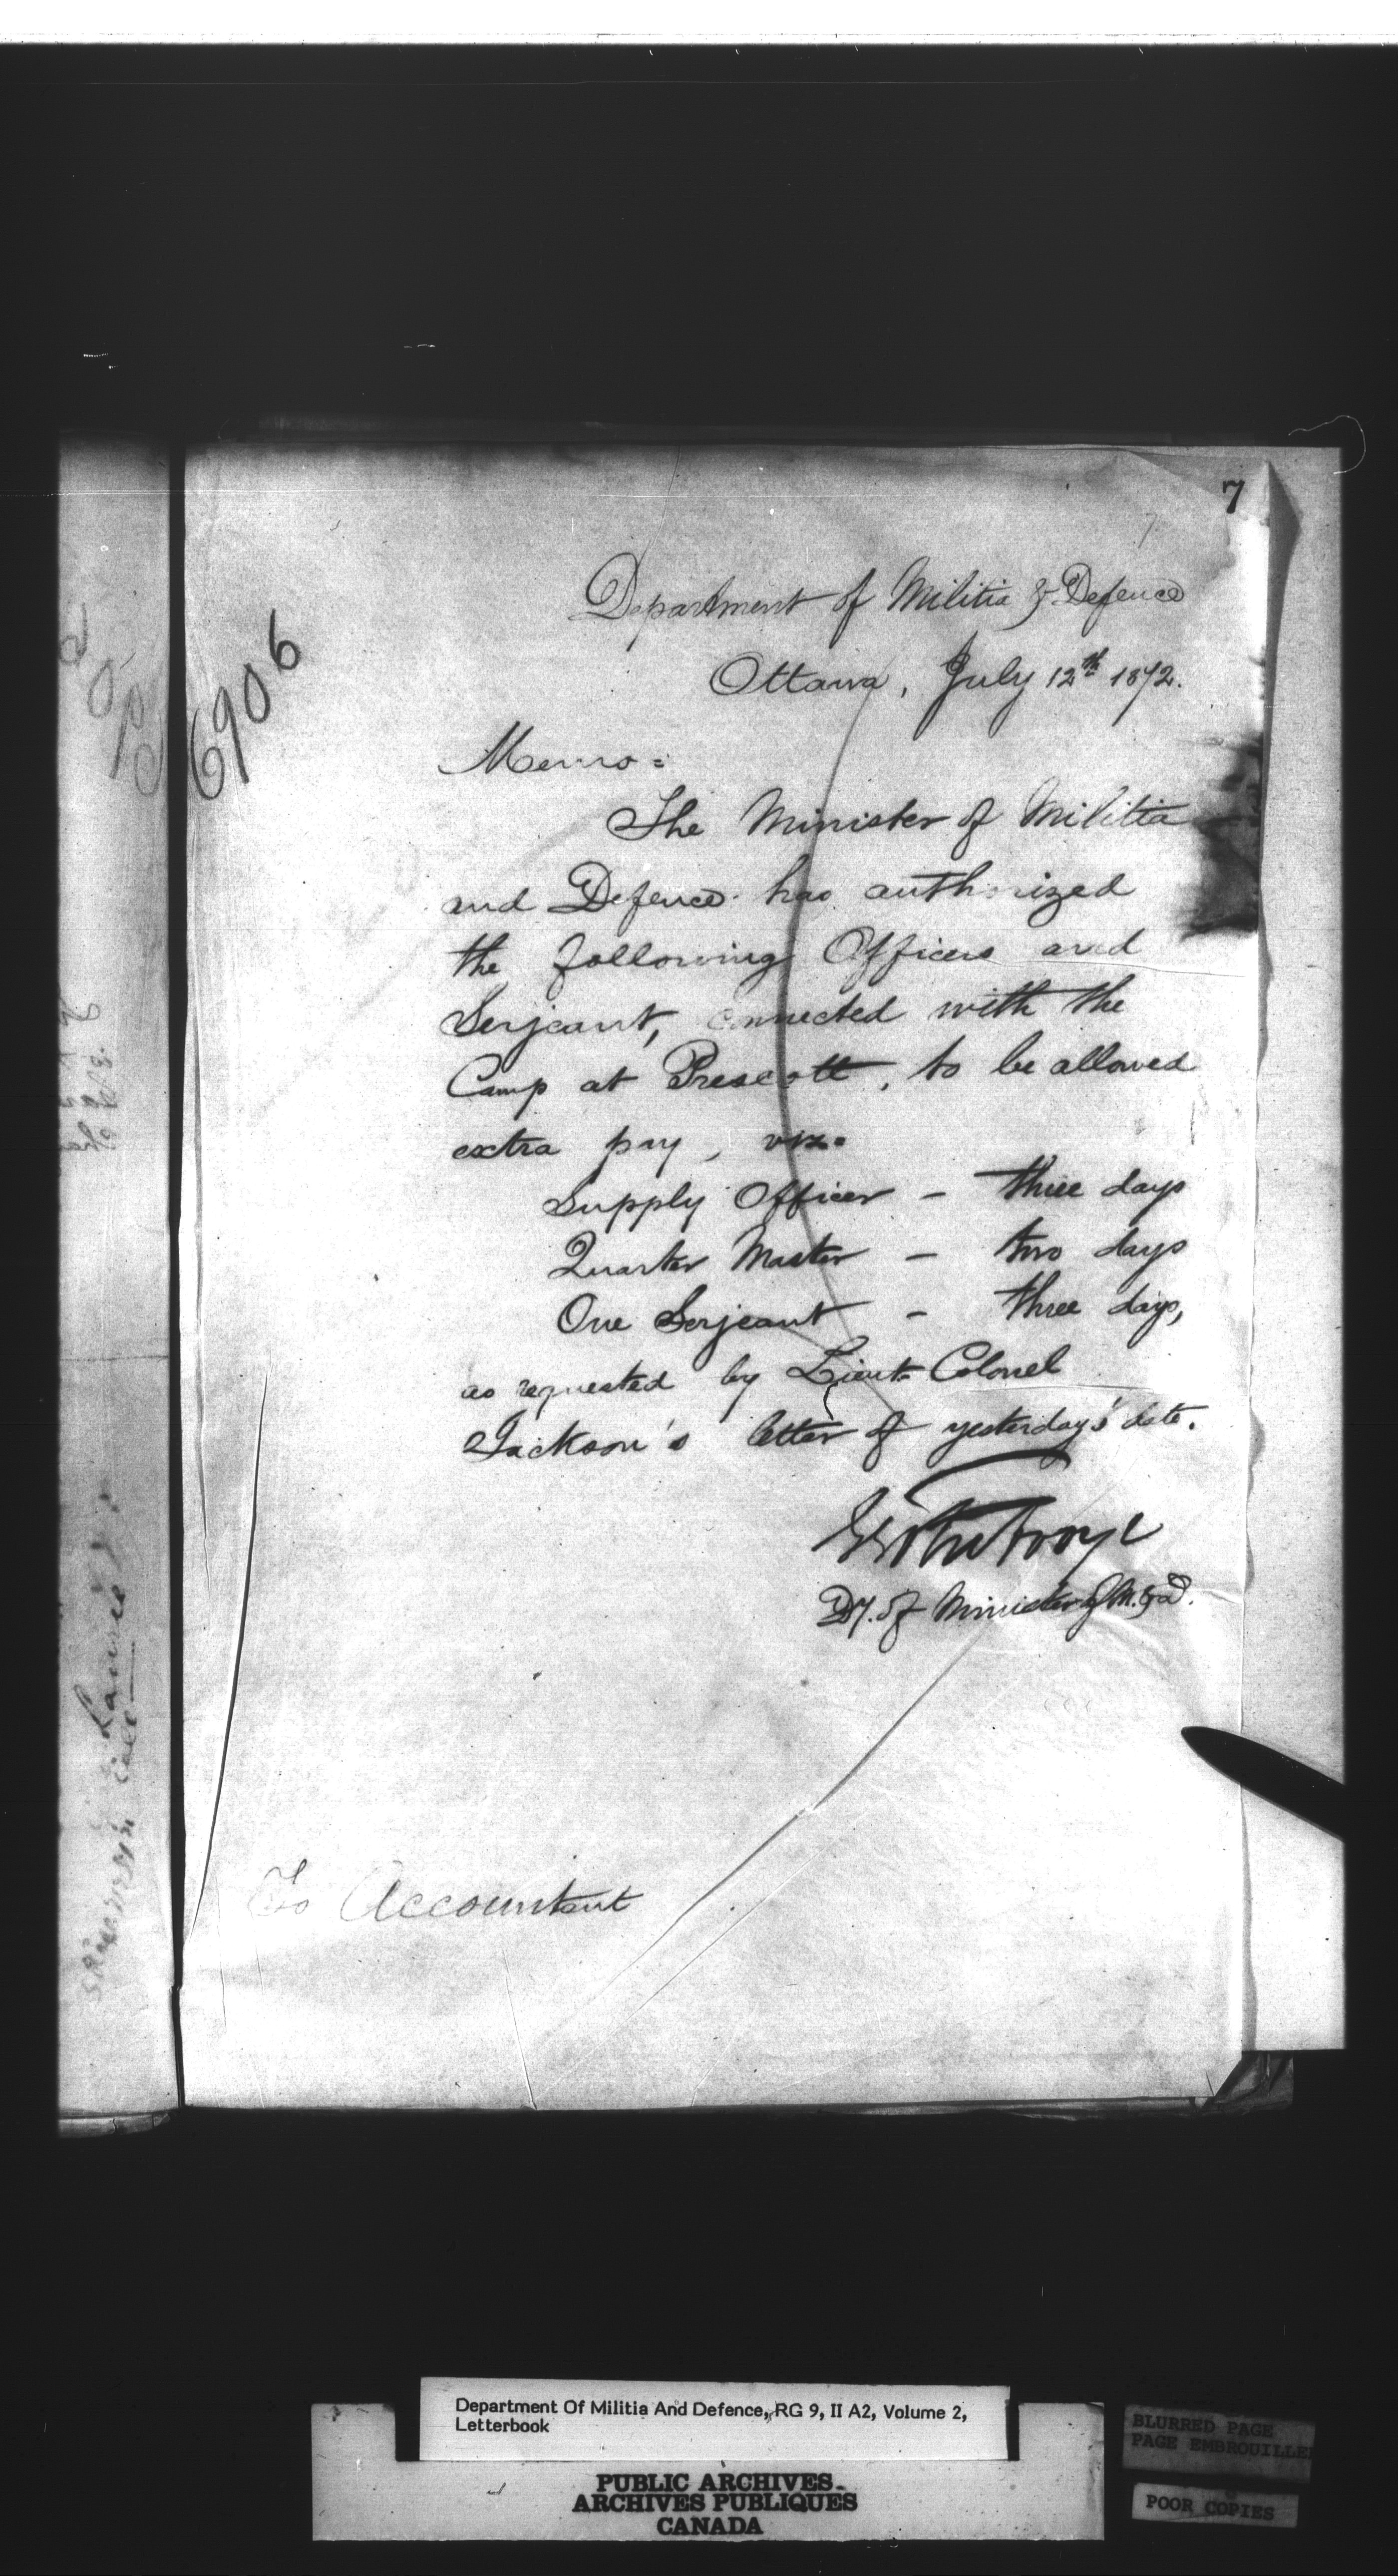 7
Department of Militia & Defence
Ottawa, July 12th 1872.
6906
Memo =
The Minister of Militia
and Defence has authorized
the following Officers and
Serjeant, connected with the
Camp at Prescott, to be allowed
extra pay, viz.
Supply Officer - three days
Quarter Master - two days
One Serjeant - three days,
as requested by Lieut Colonel
Jackson's letter of yesterday's date.
Dy. of Minister of M. & D.
To Accountant
Department Of Militia And Defence, RG 9, II A2, Volume 2,
Letterbook
PUBLIC ARCHIVES
ARCHIVES PUBLIQUES
CANADA
BLURRED PAGE
PAGE EMBROUILLE
POOR COPIES